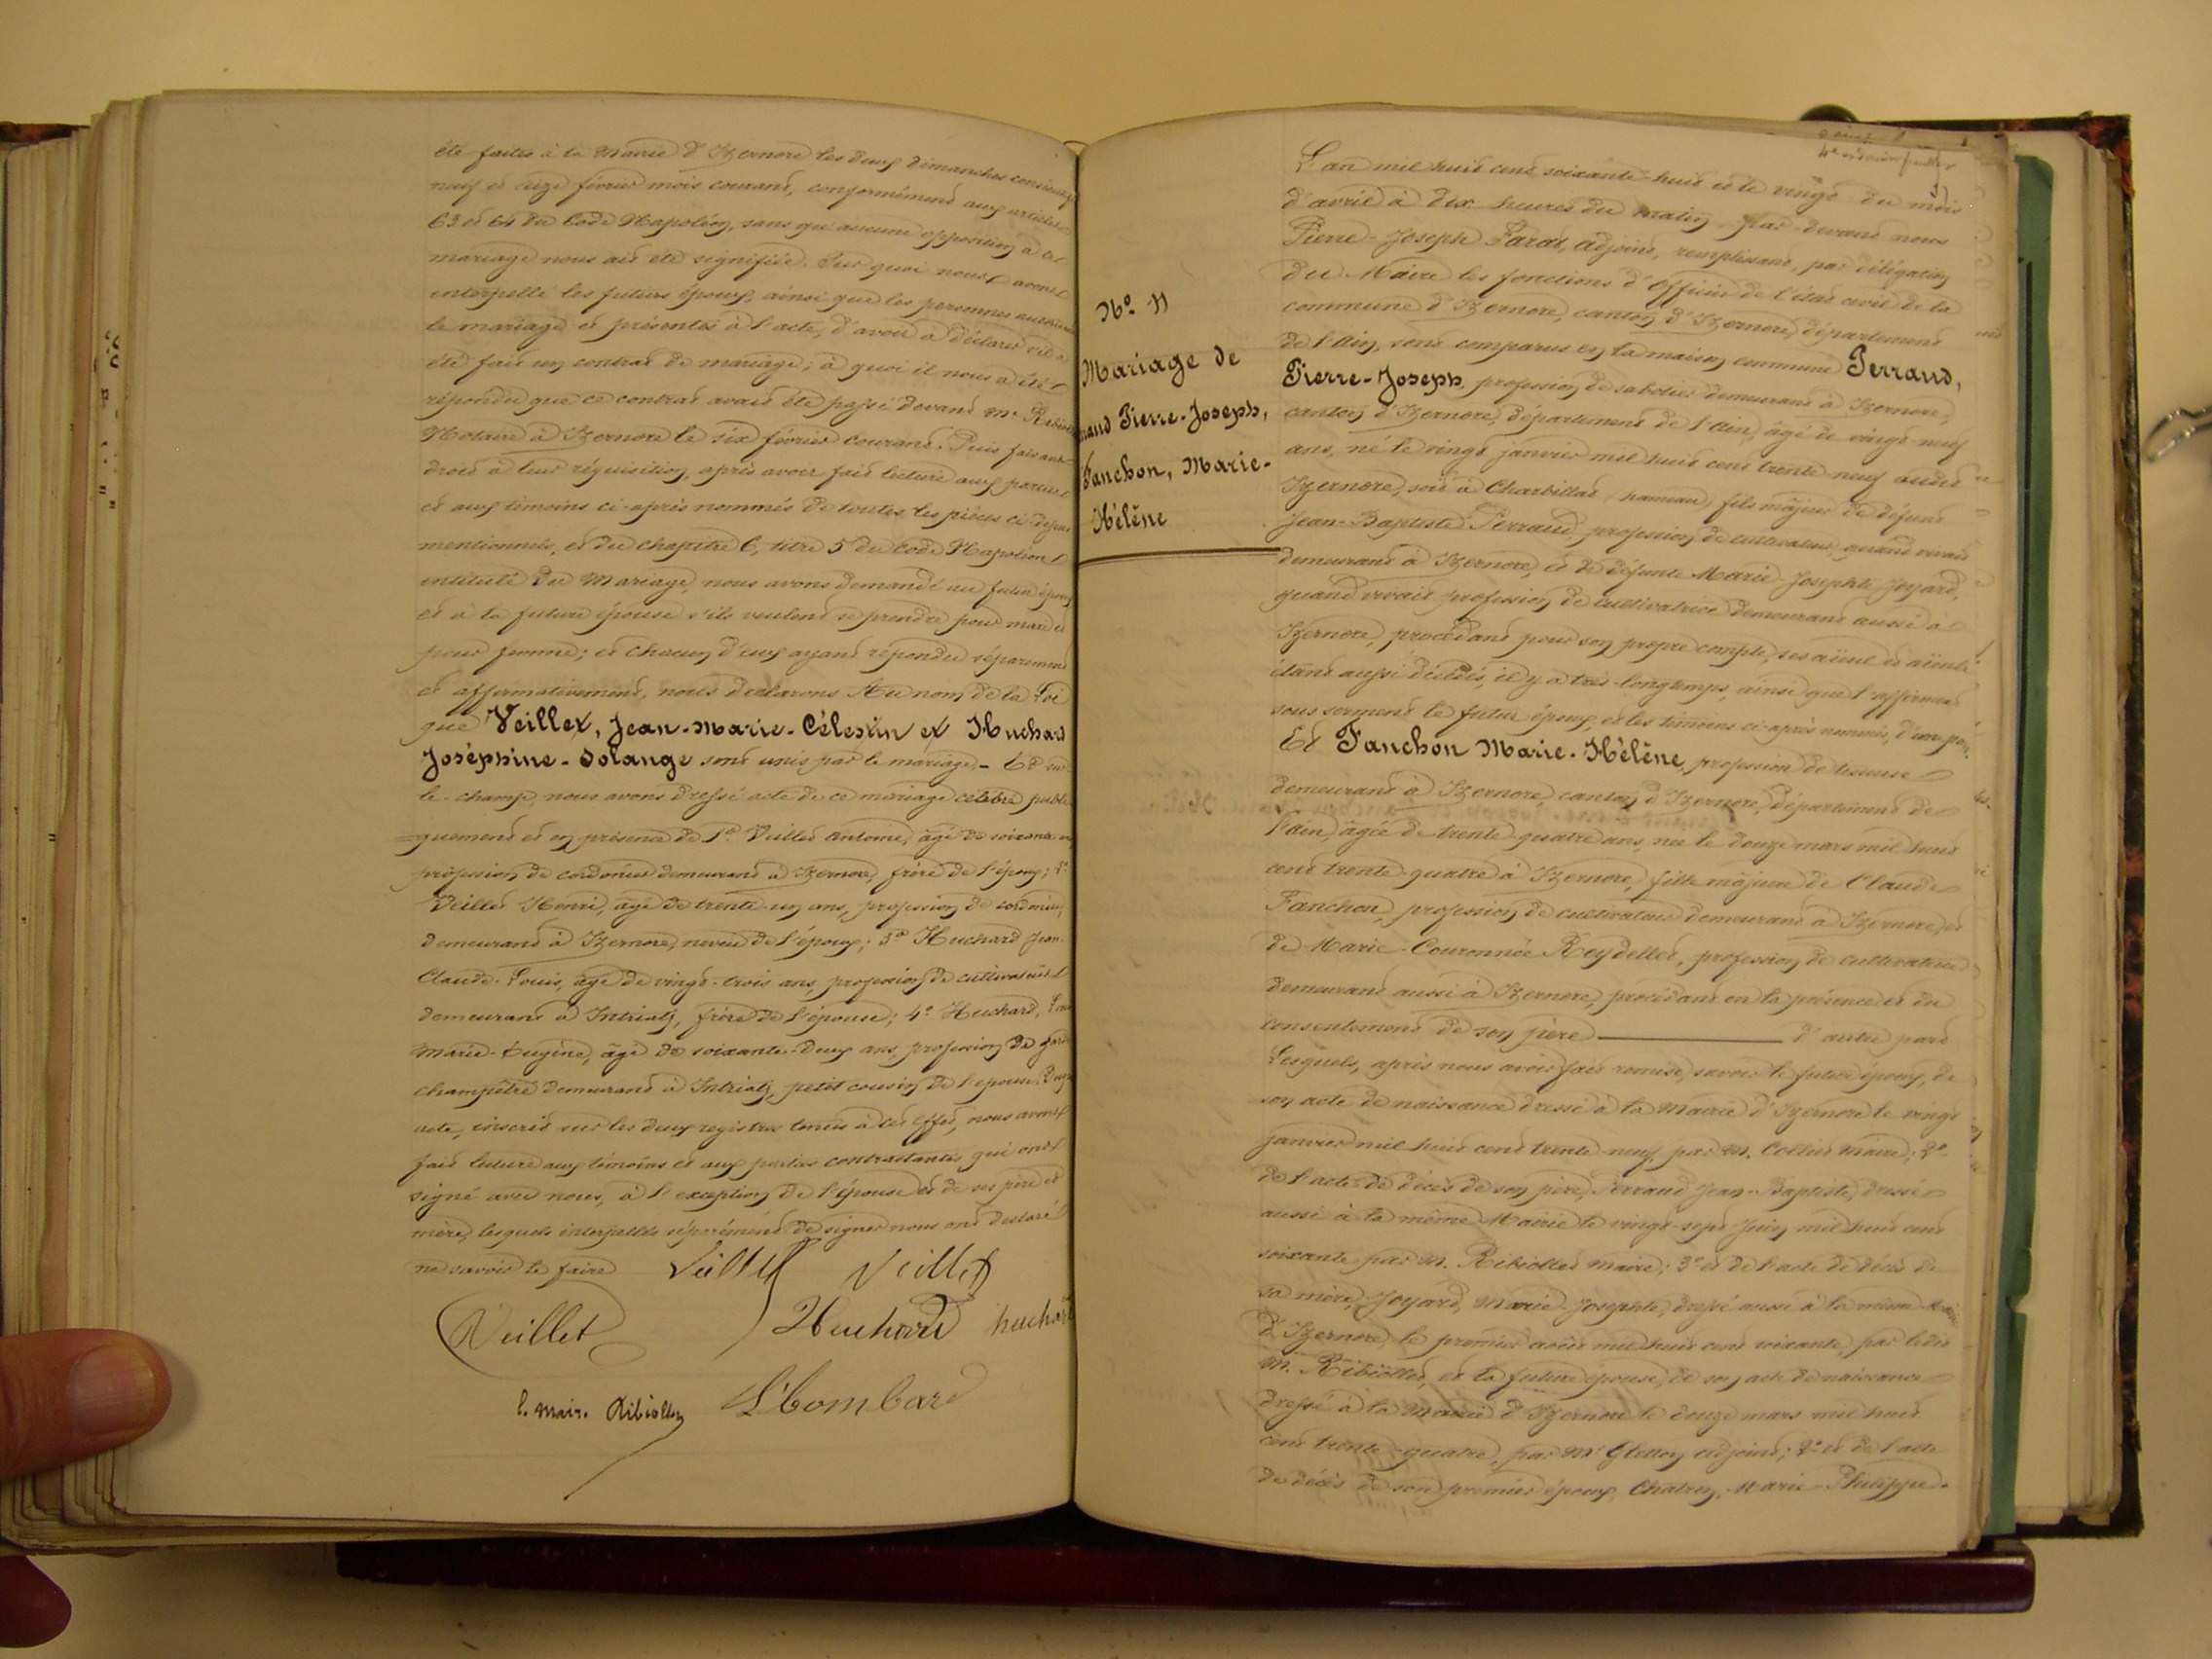 été faites à la Mairie d'Izernore les deux dimanches consécutifs
neuf et seize février mois courant, conformément aux articles
63 et 64 du Code Napoléon, sans que aucune opposition à ce
mariage nous ait été signifiée. Sur quoi nous avons
interpellé les futurs époux, ainsi que les personnes autorisant
le mariage et présentes à l'acte, d'avoir à déclarer s'il a
été fait un contrat de mariage; à quoi il nous a été
répondu que ce contrat avait été passé devant Me
Notaire à Izernore le six février courant. Puis faisant
droit à leur réquisition, après avoir fait lecture aux parties
et aux témoins ci-après nommés de toutes les pièces ci-dessus
mentionnées, et du chapitre 6, titre 5 du Code Napoléon
intitulé Du Mariage, nous avons demandé au futur époux
et à la future épouse s'ils veulent se prendre pour mari et
pour femme; et chacun d'eux ayant répondu séparément
et affirmativement, nous déclarons Au nom de la Loi
que Veillet, Jean-Marie-Célestin et Huchard
Joséphine-Solange sont unis par le mariage. - Et sur
le champ, nous avons dressé acte de ce mariage célébré publi
quement et en présence de 1° Veillet Antoine, âgé de soixante
profession de cordonnier demeurant à Izernore, frère de l'époux; 2°
Veillet Henri, âgé de trente-un ans, profession de cordonnier,
demeurant à Izernore, neveu de l'époux; 3° Huchard Jean-
Claude-Louis, âgé de vingt-trois ans, profession de cultivateur
demeurant à Intriat, frère de l'épouse; 4° Huchard,
Marie-Eugène, âgé de soixante-deux ans, profession de garde
champêtre demeurant à Intriat, petit cousin de l'épouse. Duquel
acte, inscrit sur les deux registres tenus à cet effet, nous avons
fait lecture aux témoins et aux parties contractantes qui ont
signé avec nous, à l'exception de l'épouse et de ses père et
mère, lesquels interpellés séparément de signer nous ont déclaré
ne savoir le faire Veillet Veillet
Veillet Huchard huchard
L. Maire Ribiollet Lhombard
No 11
Mariage de
raud Pierre-Joseph,
Fanchon, Marie-
Hélène
L'an mil huit cent soixante-huit et le vingt du mois
d'avril à dix heures du matin par devant nous
Pierre-Joseph Farat, adjoint, remplissant, par délégation
du Maire les fonctions d'Officier de l'état civil de la
commune d'Izernore, canton d'Izernore, département
de l'Ain, sont comparus en la maison commune Perraud,
Pierre-Joseph, profession de sabotier demeurant à Izernore,
canton d'Izernore, département de l'Ain, âgé de vingt neuf
ans, né le vingt janvier mil huit cent trente-neuf audit
Izernore, soit à Charbillat hameau, fils majeur de défunt
Jean-Baptiste Perraud, profession de cultivateur, quand vivait
demeurant à Izernore, et de défunte Marie-Josephte Joyard,
quand vivait profession de cultivatrice demeurant aussi à
Izernore, procédant pour son propre compte, ses aïeul et aïeule
étant aussi décédés, il y a très-longtemps, ainsi que l'affirment
sous serment le futur époux, et les témoins ci-après nommés, d'une part.
Et Fanchon Marie-Hélène, profession de tisseuse
demeurant à Izernore, canton d'Izernore, département de
l'Ain, âgée de trente-quatre ans, née le douze mars mil huit
cent trente-quatre à Izernore, fille majeure de Claude
Fanchon, profession de cultivateur demeurant à Izernore, et
de Marie-Couronnée Reydellet, profession de cultivatrice
demeurant aussi à Izernore, procédant en la présence et du
consentement de son père d'autre part
Lesquels, après nous avoir fait remise, savoir le futur époux, de
son acte de naissance dressé à la Mairie d'Izernore le vingt
janvier mil huit cent trente-neuf, par M. Maire; 2°
de l'acte de décès de son père, Perraud Jean-Baptiste, dressé
aussi à la même Mairie le vingt-sept juin mil huit cent
soixante par M. Ribiollet Maire; 3° et de l'acte de décès de
sa mère, Joyard, Marie-Josephte, dressé aussi à la même Mairie
d'Izernore, le premier août mil huit cent soixante, par ledit
M. Ribiollet, et la future épouse, de son acte de naissance
dressé à la Mairie d'Izernore le douze mars mil huit
cent trente-quatre, par Mr Gletton adjoint; 2° et de l'acte
de décès de son premier époux, Marie-Philippe.